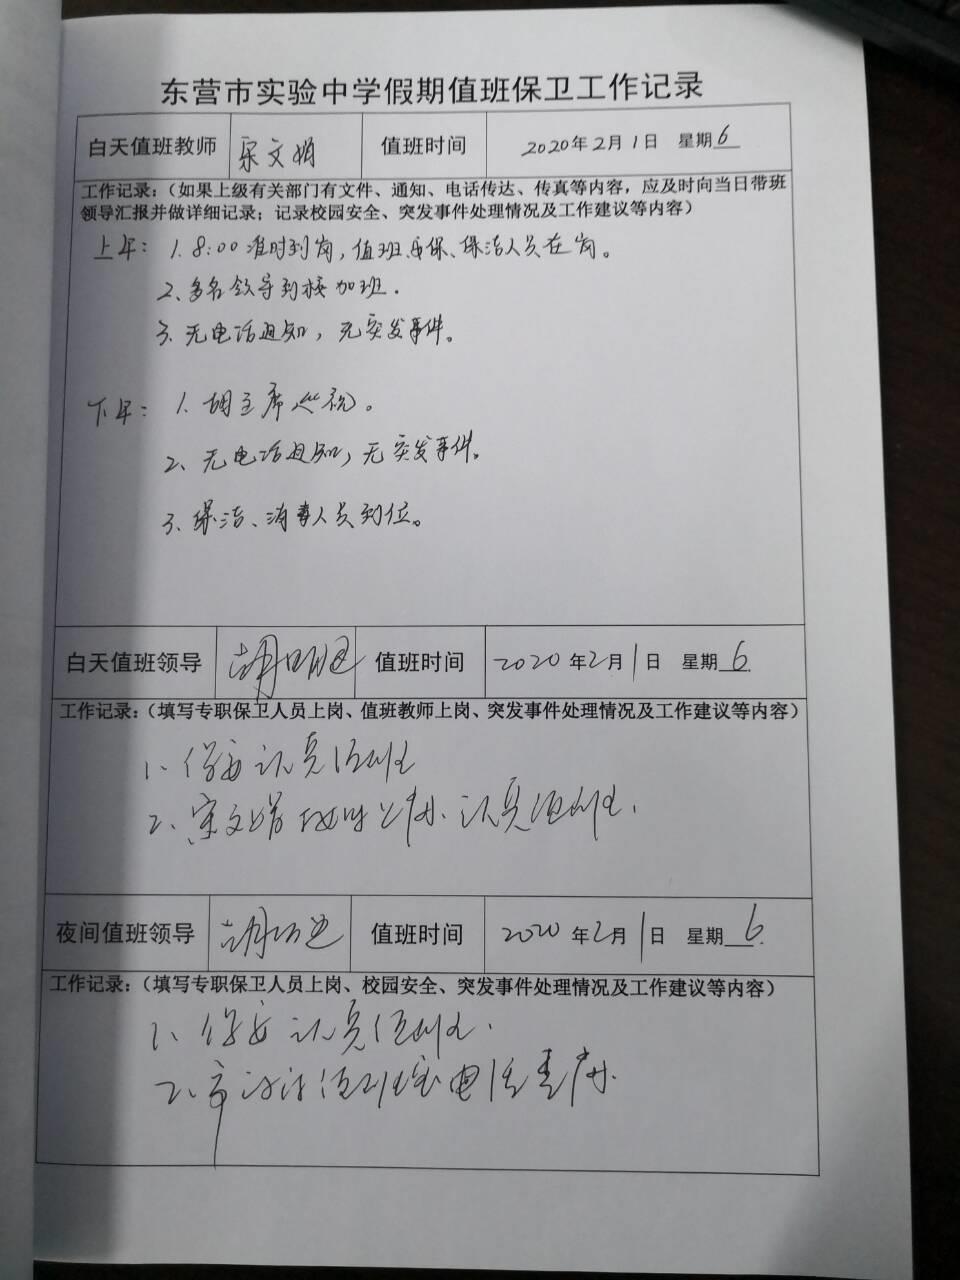 东营市实验中学假期值班保卫工作记录
白天值班教师 宋文娟 值班时间 2020年2月1日 星期6
工作记录：（如果上级有关部门有文件、通知、电话传达、传真等内容，应及时向当日带班
领导汇报并做详细记录；记录校园安全、突发事件处理情况及工作建议等内容）
上午：1. 8:00准时到岗，值班、安保、保洁人员在岗。
2、多名领导到校加班.
3、无电话通知，无突发事件。
下午：1. 胡主席巡视。
2、无电话通知，无突发事件。
3、保洁、消毒人员到位。
白天值班领导 值班时间 2020年2月1日 星期6
工作记录：（填写专职保卫人员上岗、值班教师上岗、突发事件处理情况及工作建议等内容）
1、保安认真值班
2、宋文娟 认真值班.
夜间值班领导 值班时间 2020年2月1日 星期6
工作记录：（填写专职保卫人员上岗、校园安全、突发事件处理情况及工作建议等内容）
1、保安认真值班.
2、市 值班室电话查岗.